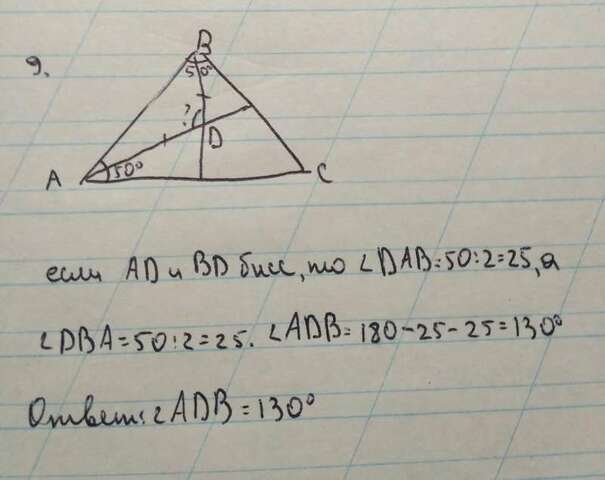 9.
B
50°
?
D
A 50° C
если AD и BD бисс, то ∠DAB=50:2=25, а
∠DBA=50:2=25. ∠ADB=180-25-25=130°
Ответ: ∠ADB=130°